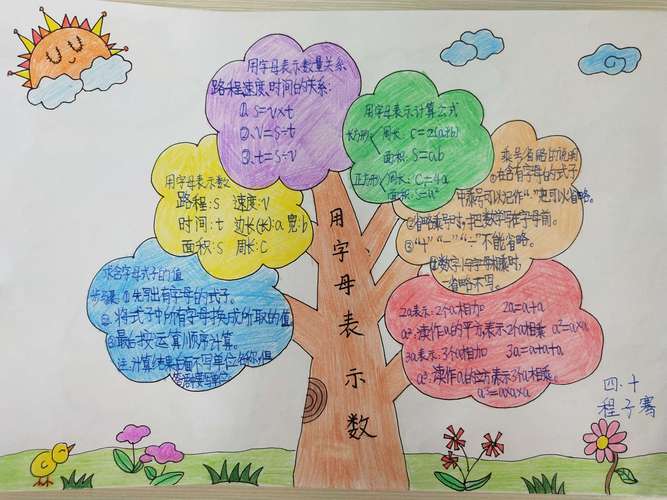 用字母表示数量关系
路程、速度、时间的关系:
①. s=v×t
②. v=s÷t
③. t=s÷v
用字母表示计算公式
长方形: 周长: C=2(a+b)
面积: S=ab
正方形: 周长: C=4a
面积: S=a²
乘号省略的说明
①在含有字母的式子
中乘号可以记作"·"也可以省略。
②省略乘号时,把数字写在字母前。
③"+" "-" "÷"不能省略。
省略不写。
用字母表示数
路程:s 速度:v
时间:t 边长(长):a 宽:b
面积:S 周长:C
求含字母式子的值
步骤:①先写出含有字母的式子。
②将式子中所有字母换成所取的值
③最后按运算顺序计算。
2a表示:2个a相加 2a=a+a
a²:读作a的平方表示2个a相乘 a²=a×a
3a表示:3个a相加 3a=a+a+a
a³:读作a的立方表示3个a相乘。
a³=a×a×a
用字母表示数
四.十
程子骞